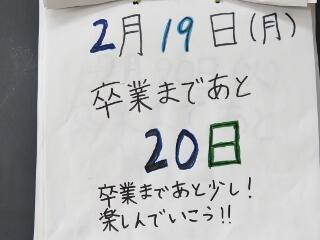 2月19日(月)
卒業まであと
20日
卒業まであと少し!
楽しんでいこう!!